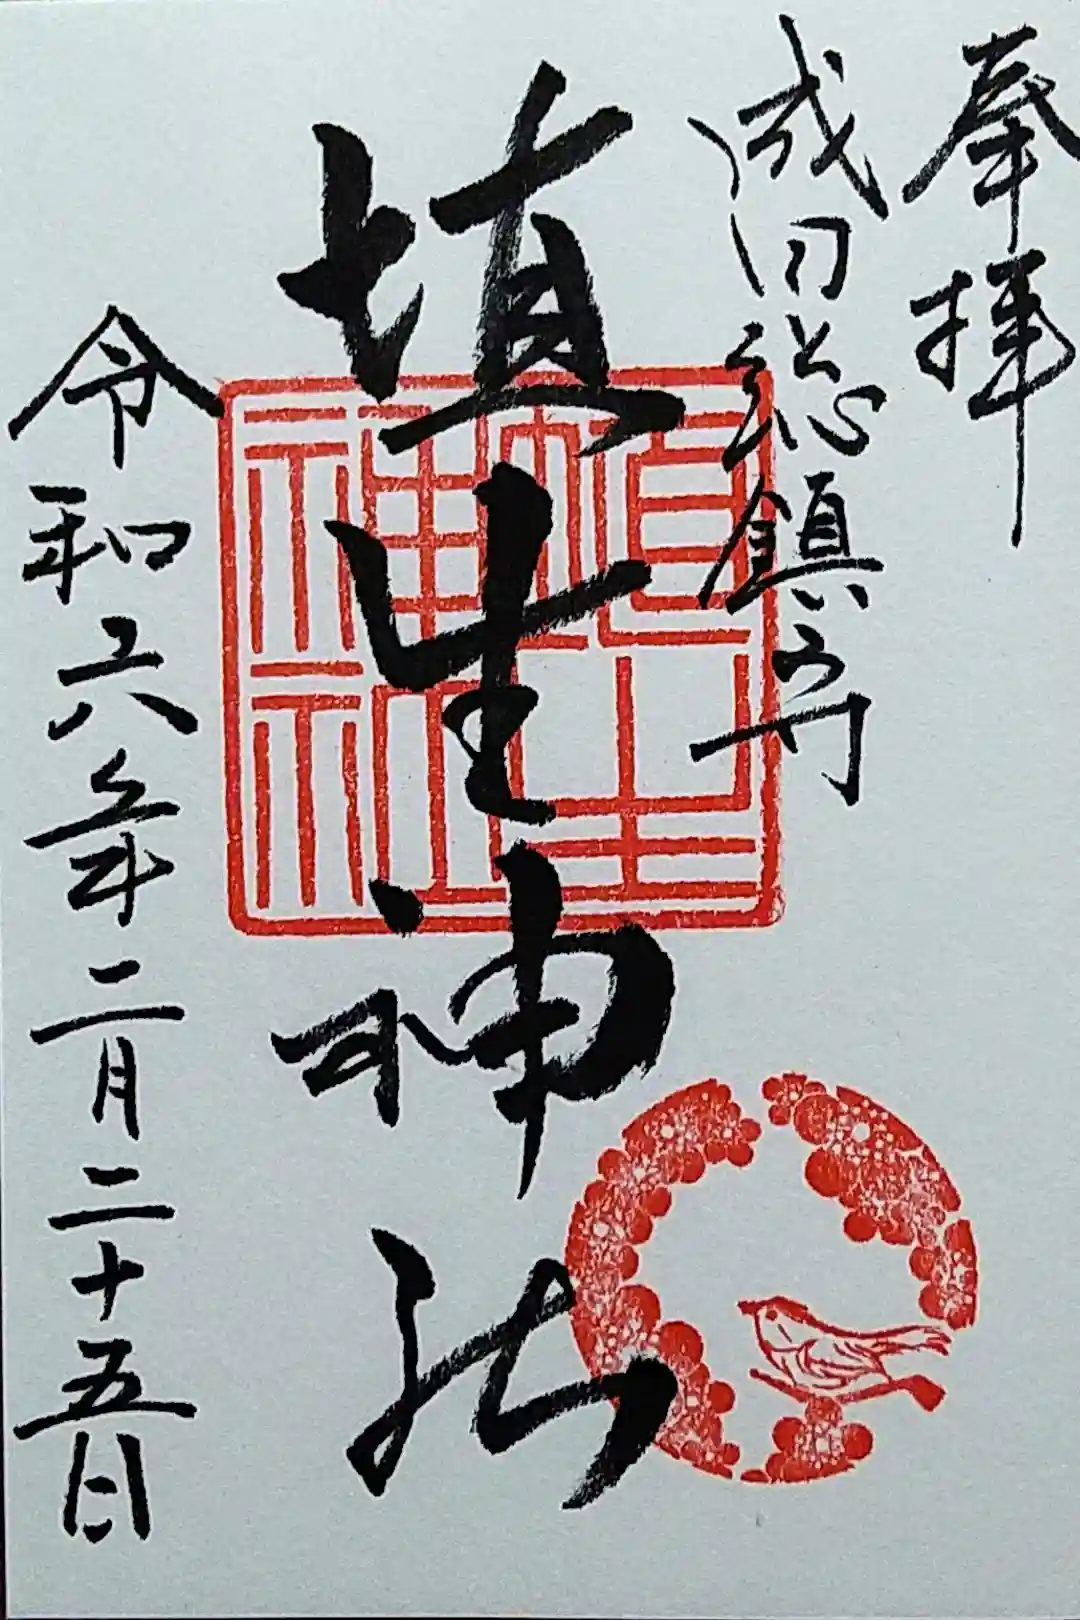 奉拝
成田総鎮守
埴生神社
令和六年二月二十五日
埴生神社